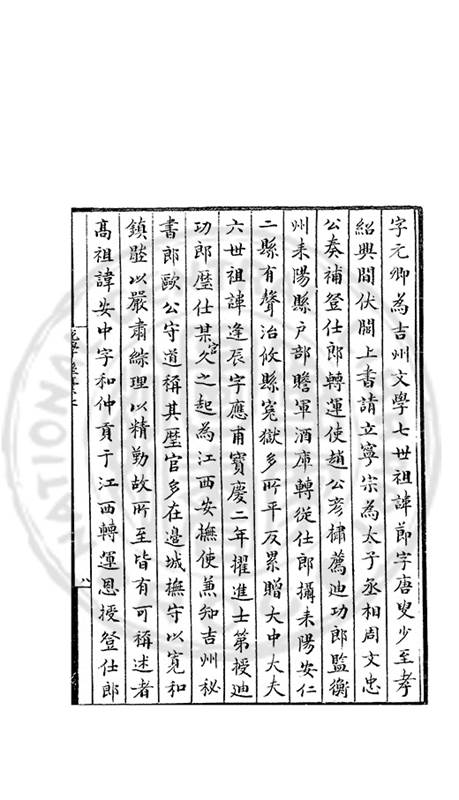 字元卿為吉州文學七世祖諱節字唐叟少至孝
紹興間伏闕上書請立寧宗為太子丞相周文忠
公奏補登仕郎轉運使趙公彥橚薦迪功郎監衡
州耒陽縣戶部贍軍酒庫轉從仕郎攝耒陽安仁
二縣有聲治攸縣寃獄多所平反累贈大中大夫
六世祖諱逢辰字應甫寶慶二年擢進士第授迪
功郎歷仕某官久之起為江西安撫使兼知吉州祕
書郎歐公守道稱其歷官多在邊城撫守以寬和
鎮壓以嚴肅綜理以精勤故所至皆有可稱述者
高祖諱安中字和仲貢于江西轉運恩授登仕郎
八